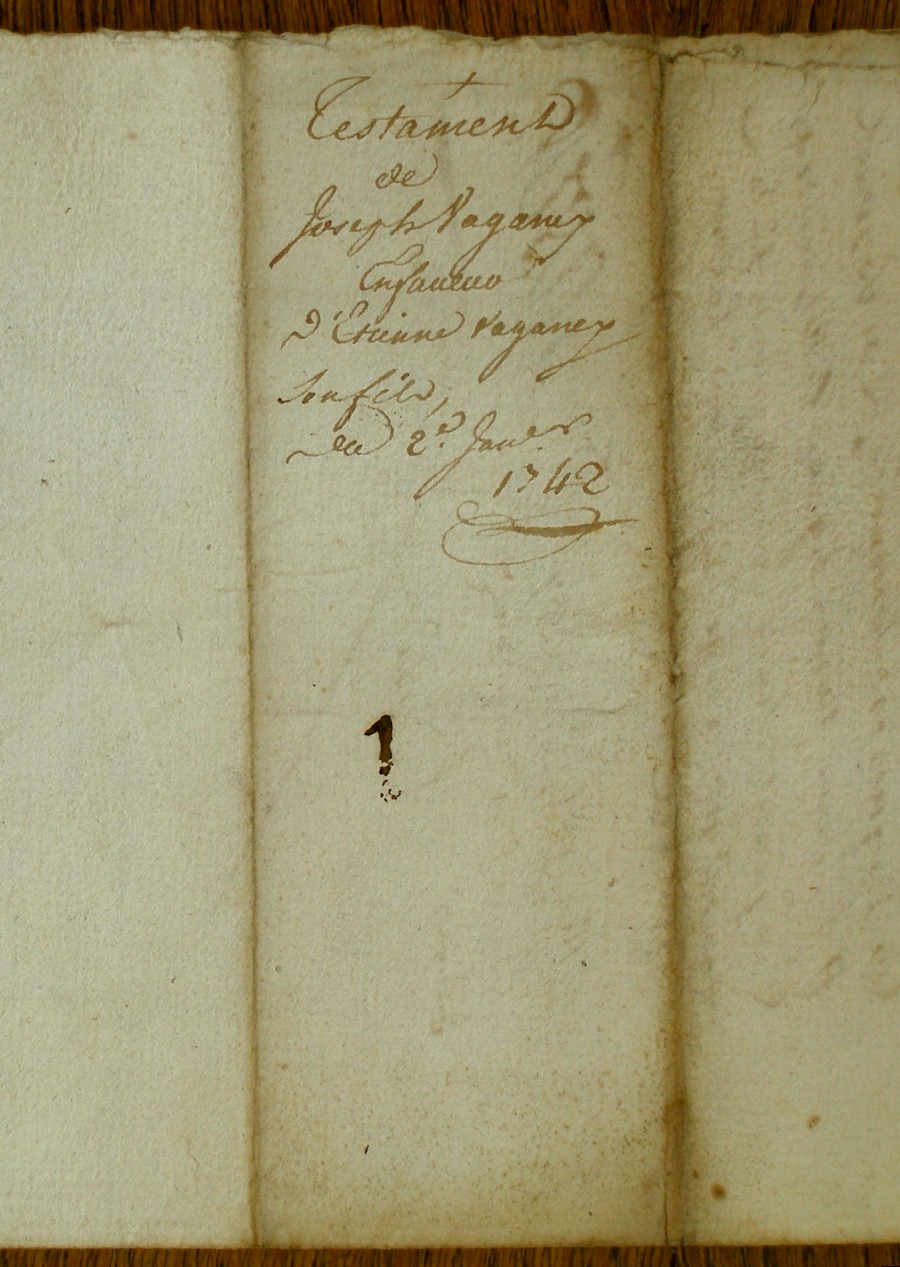 Testament
de
Joseph Vaganey
En faveur
D'Etienne Vaganey
son fils,
du 2e. Janer
1742
1